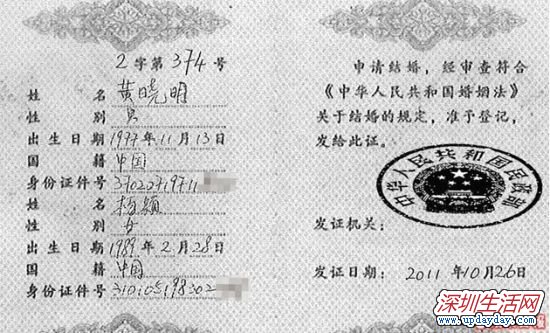 2字第374号
姓名 黄晓明
性别 男
出生日期 1977年11月13日
国籍 中国
身份证件号 3702071971
姓名 杨颖
性别 女
出生日期 1989年2月28日
国籍 中国
身份证件号
申请结婚，经审查符合
《中华人民共和国婚姻法》
关于结婚的规定，准予登记，
发给此证。
中华人民共和国民政部
发证机关：
发证日期：2011年10月26日
深圳生活网
www.updayday.com